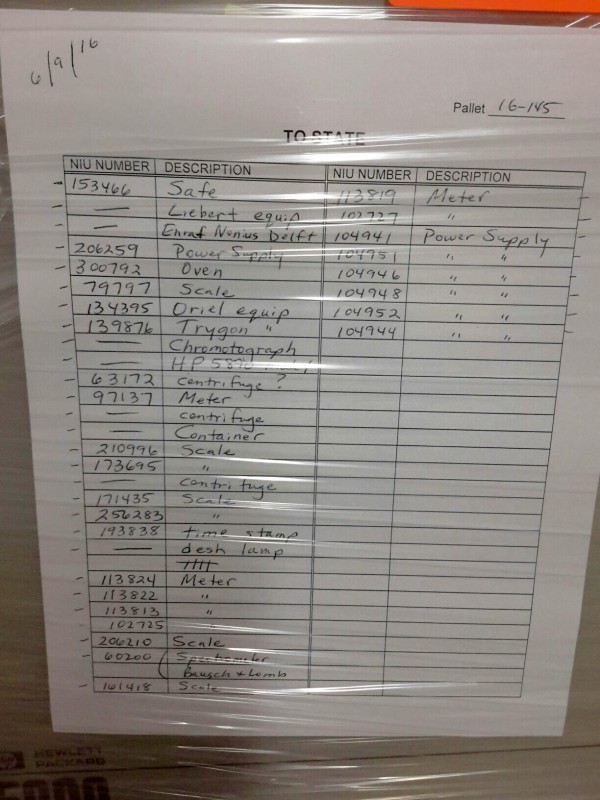 6/9/16
Pallet 16-145
TO STATE
NIU NUMBER DESCRIPTION NIU NUMBER DESCRIPTION
153466 Safe 113819 Meter
— Liebert equip 102727 "
— Enraf Nonius Delft 104941 Power Supply
206259 Power Supply 104951 " "
300792 Oven 104946 " "
79797 Scale 104948 " "
134395 Oriel equip 104952 " "
139876 Trygon " 104944 " "
— Chromotograph
— HP 5890
63172 centrifuge ?
97137 Meter
— centrifuge
— Container
210996 Scale
173695 "
— centrifuge
171435 Scale
256283 "
193838 time stamp
— desk lamp
113824 Meter
113822 "
113813 "
102725 "
206210 Scale
60200 Spectrometer
Bausch + Lomb
161418 Scale
hp HEWLETT
PACKARD